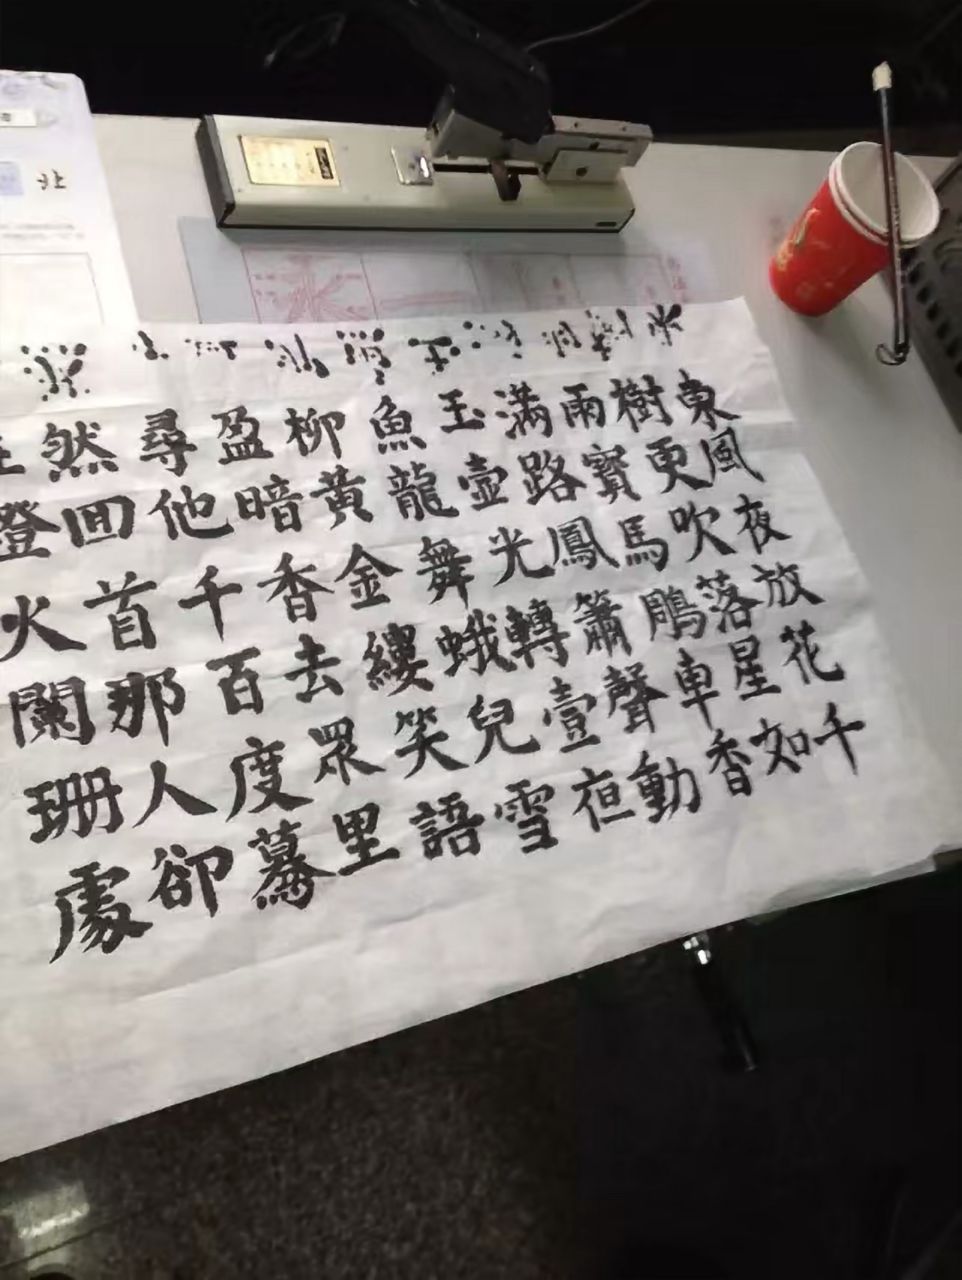 東風夜放花千
樹更吹落星如
雨寶馬鵰車香
滿路鳳簫聲動
玉壷光轉壹夜
魚龍舞蛾兒雪
柳黄金縷笑語
盈暗香去眾里
尋他千百度驀
然囬首那人卻
在燈火闌珊處
北